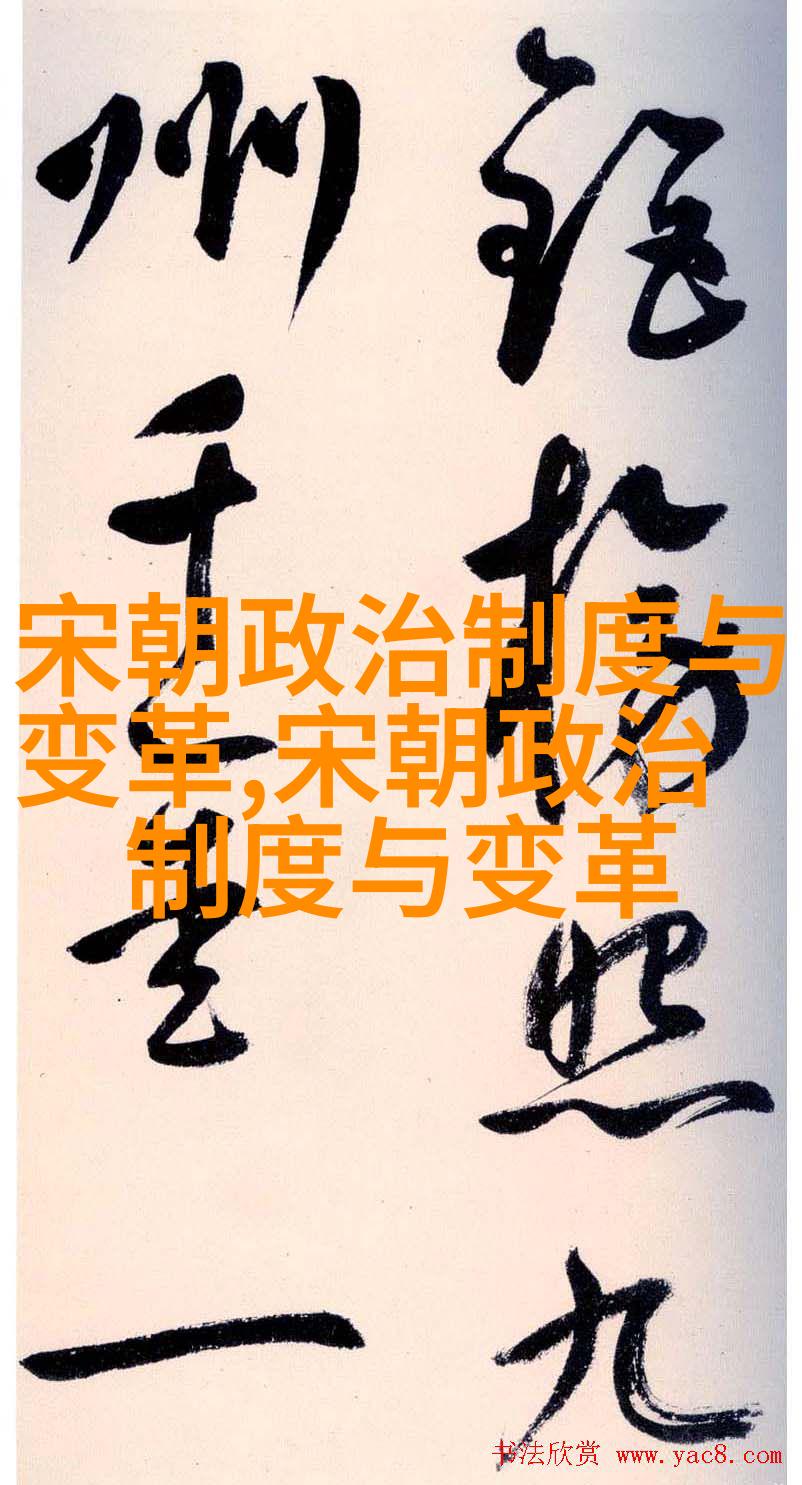 宋朝政治制度与
变革,宋朝政治
制度与变革
照九
州千一
书法欣赏 www.yac8.com